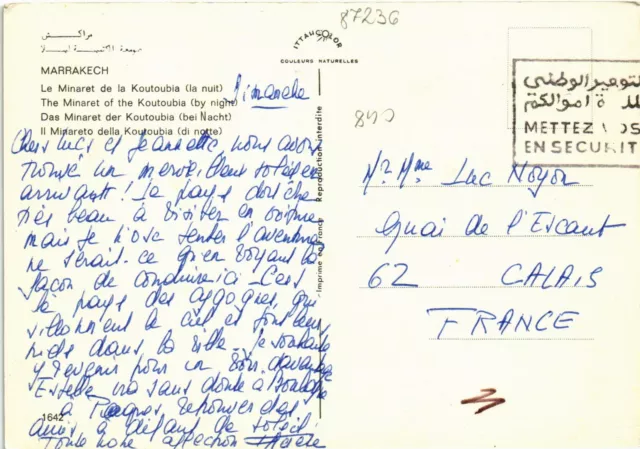 87236
مراكش
ITTAHCOLOR
COULEURS NATURELLES
MARRAKECH
Le Minaret de la Koutoubia (la nuit)
The Minaret of the Koutoubia (by night)
Das Minaret der Koutoubia (bei Nacht)
Il Minareto della Koutoubia (di notte)
Dimanche
Chers Luc et Jeannette, nous avons
trouvé un merveilleux soleil en
arrivant! Le pays doit être
très beau à visiter en voiture
mais je n'ose tenter l'aventure
ne serait-ce qu'en voyant la
façon de conduire ici. C'est
le pays des cigognes, qui
sillonnent le ciel et font leurs
nids dans la ville. Je souhaite
y revenir pour un
Estelle ira sans doute à
à Pâques retrouver des
amis à défaut de soleil.
Toute notre affection
1642
Imprimé en France Reproduction interdite
840
METTEZ VOS
EN SECURIT
Mr Mme Luc Noyon
Quai de l'Escaut
62 CALAIS
FRANCE